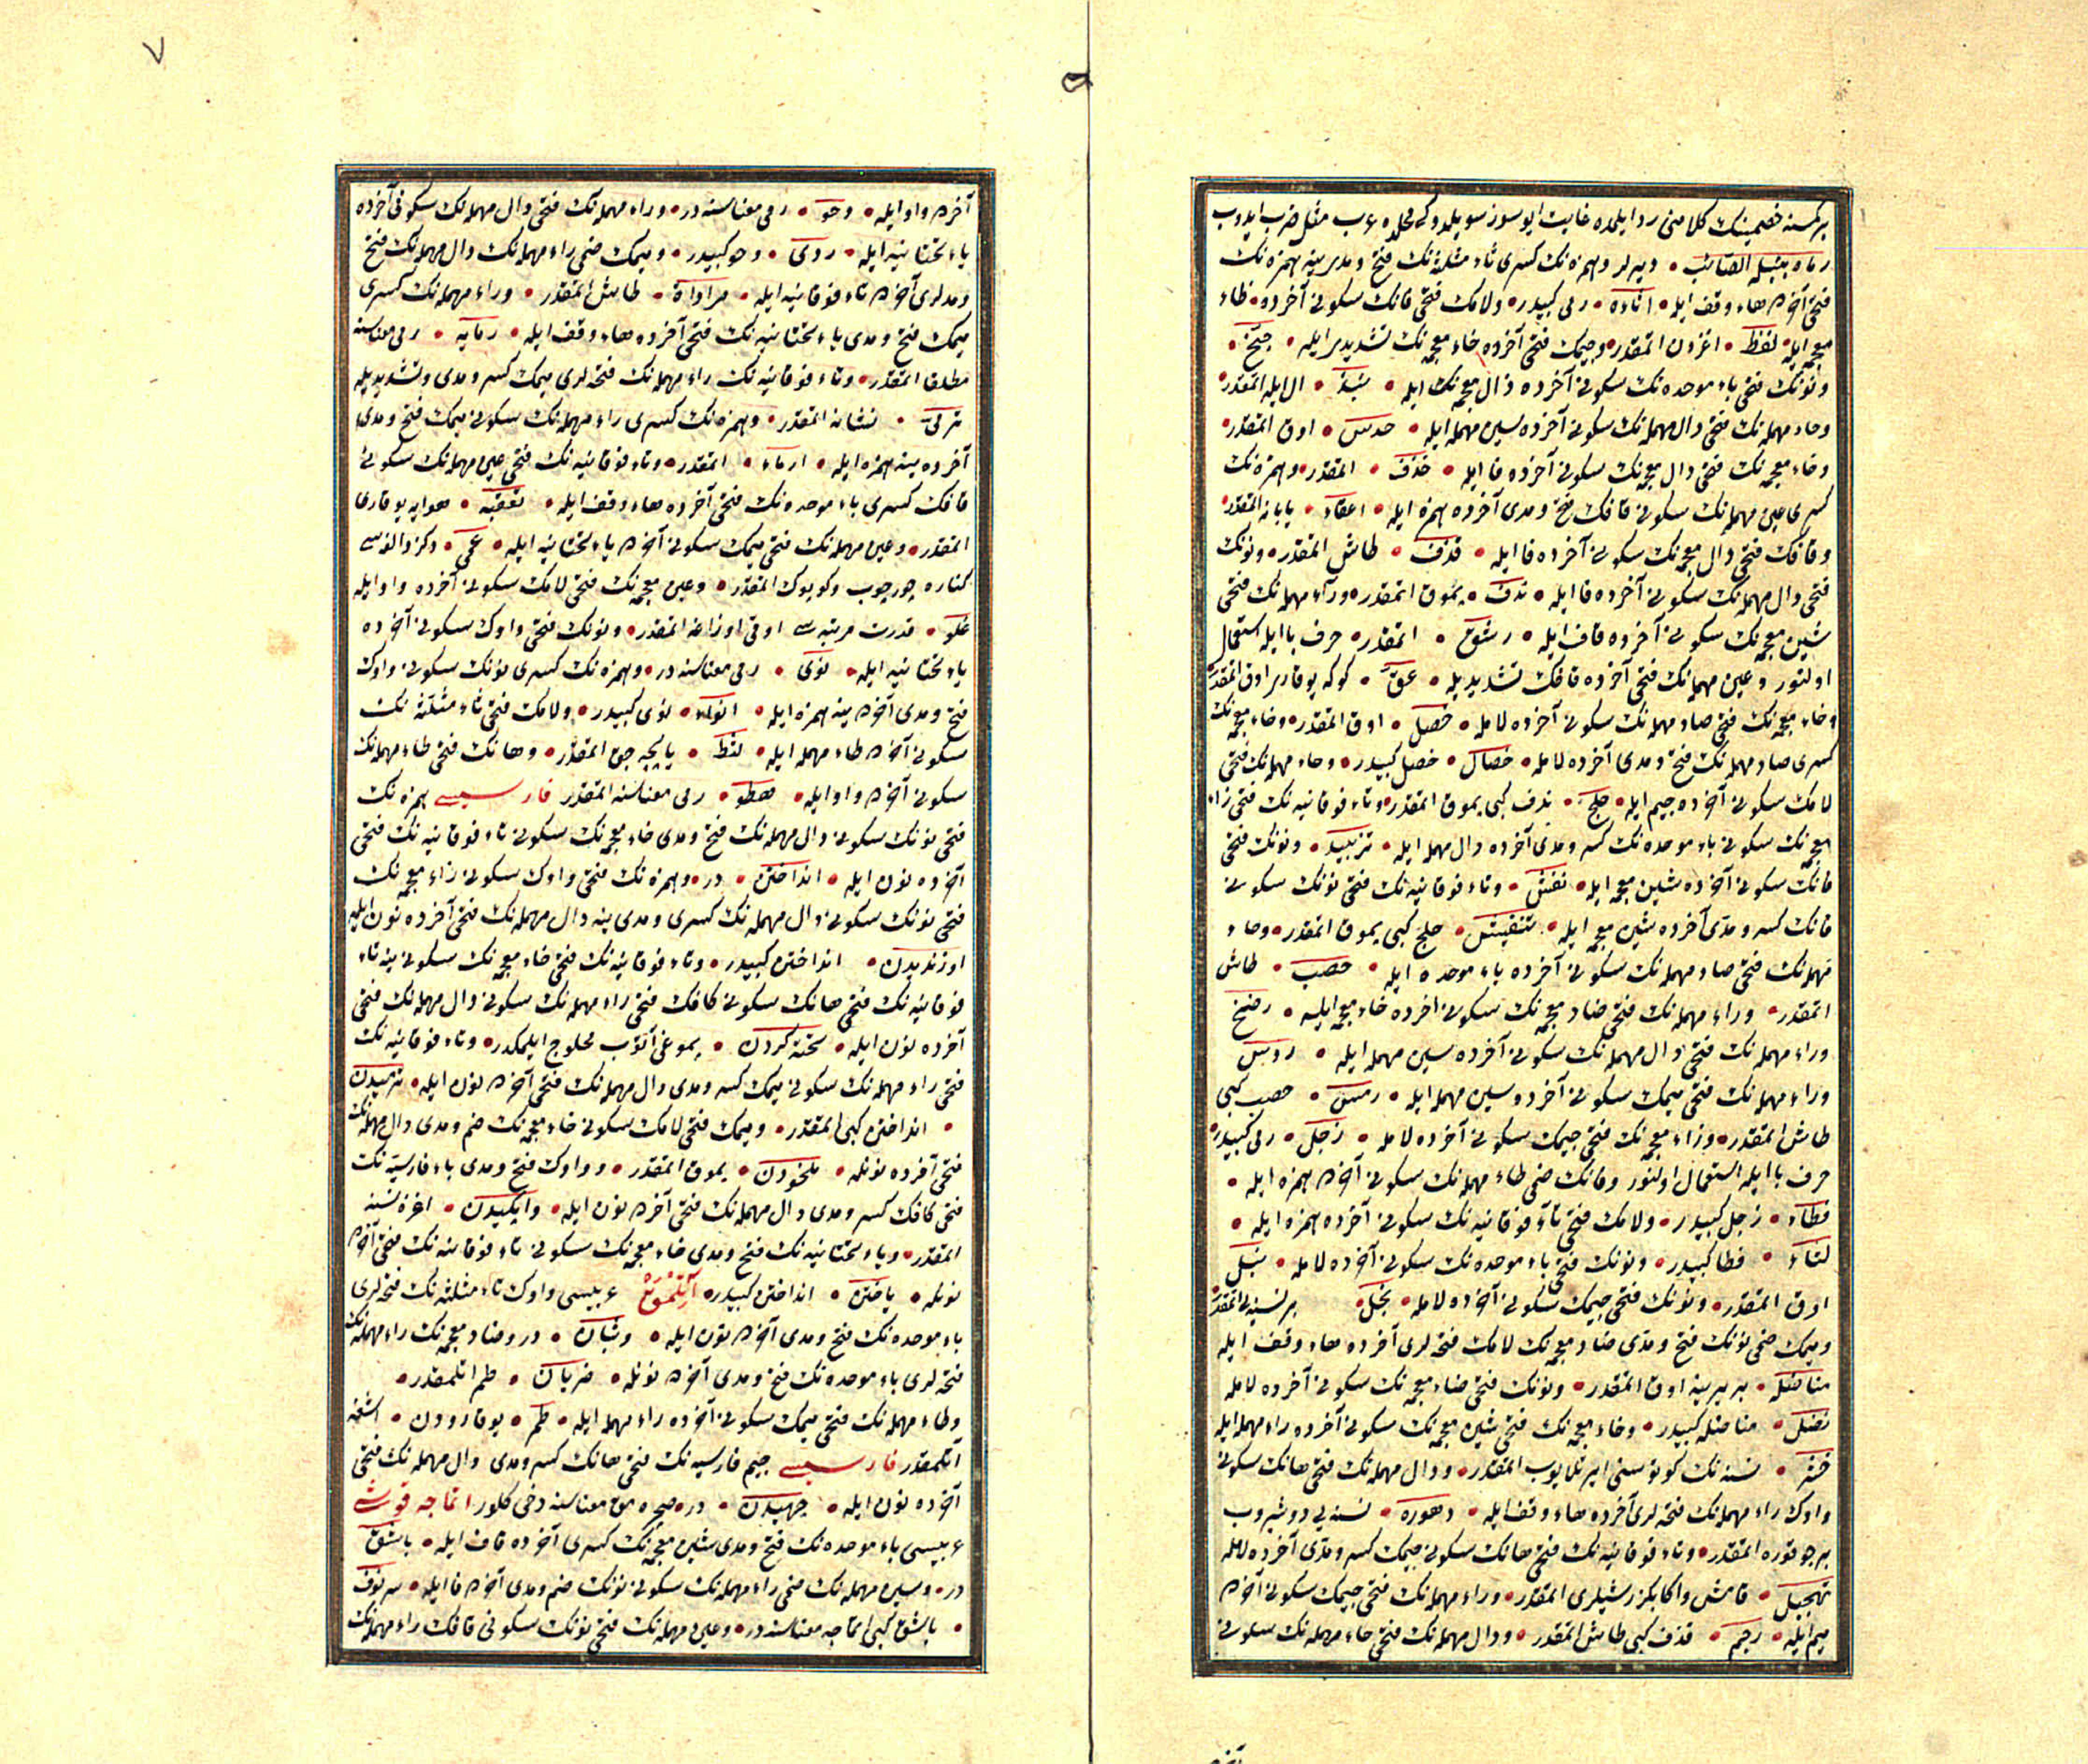 بر کمسنه خصمینك کلامنی رد ایلمده غایت ایو سوز سویلدوکی محلده عرب مثل ضرب ایدوب
رماه بنبله الصائب • دیرلر وهمزه نك کسری ثاء مثلثه نك فتح و مدیله ینه همزه نك
فتحی آخرده هاء وقف ایله • اثاءه • رمی کبیدر • ولامك فتحی فانك سکونی آخرده • ظاء
معجمه ایله • لفظ • اغزدن اتمقدر • وجیمك فتحی آخرده خاء معجمه نك تشدیدیله • جخّ •
ونونك فتحی باء موحده نك سکونی آخرده ذال معجمه نك ایله • نبذ • ال ایله اتمقدر •
وحاء مهمله نك فتحی دال مهمله نك سکونی آخرده سین مهمله ایله • حدس • اوق اتمقدر •
وخاء معجمه نك فتحی ذال معجمه نك سکونی آخرده فا ایله • خذف • اتمقدر • وهمزه نك
کسری عین مهمله نك سکونی قافك فتح و مدی آخرده همزه ایله • اعقاء • یابانه اتمقدر •
وقافك فتحی ذال معجمه نك سکونی آخرده فا ایله • قذف • طاش اتمقدر • ونونك
فتحی دال مهمله نك سکونی آخرده فا ایله • ندف • یموق اتمقدر • وراء مهمله نك فتحی
شین معجمه نك سکونی آخرده قاف ایله • رشق • اتمقدر • حرف با ایله استعمال
اولنور و عین مهمله نك فتحی آخرده قافك تشدیدیله • عقّ • کوکه یوقارو اوق اتمقدر
وخاء معجمه نك فتحی صاد مهمله نك سکونی آخرده لامله • خصل • اوق اتمقدر • وخاء معجمه نك
کسری صاد مهمله نك فتح و مدی آخرده لامله • خصال • خصل کبیدر • وحاء مهمله نك فتحی
لامك سکونی آخرده جیم ایله • حلج • ندف کبی یموق اتمقدر • وتاء فوقانیه نك فتحی زاء
معجمه نك سکونی باء موحده نك کسر و مدی آخرده دال مهمله ایله • تزبید • ونونك فتحی
فانك سکونی آخرده شین معجمه ایله • نفش • وتاء فوقانیه نك فتحی نونك سکونی
فانك کسر و مدّی آخرده شین معجمه ایله • تنفیش • حلج کبی یموق اتمقدر • وحاء
مهمله نك فتحی صاد مهمله نك سکونی آخرده باء موحده ایله • حصب • طاش
اتمقدر • وراء مهمله نك فتحی ضاد معجمه نك سکونی اخرده خاء معجمه ایله • رضخ
وراء مهمله نك فتحی دال مهمله نك سکونی آخرده سین مهمله ایله • ردس
وراء مهمله نك فتحی میمك سکونی آخرده سین مهمله ایله • رمس • حصب کبی
طاش اتمقدر • وزاء معجمه نك فتحی جیمك سکونی آخرده لامله • زجل • رمی کبیدر •
حرف با ایله استعمال اولنور وفانك ضمی طاء مهمله نك سکونی آخره همزه ایله •
فطاء • زجل کبیدر • ولامك فتحی تاء فوقانیه نك سکونی آخرده همزه ایله •
لتاء • فطا کبیدر • ونونك فتحی باء موحده نك سکونی آخرده لامله • نبل
اوق اتمقدر • ونونك فتحی جیمك سکونی آخرده لامله • نجل • بر نسنه یی اتمقدر
ومیمك ضمی نونك فتح و مدّی ضاد معجمه نك لامك فتحه لری آخرده هاء وقف ایله
مناضله • بر برینه اوق اتمقدر • ونونك فتحی ضاد معجمه نك سکونی آخرده لامله
نضل • مناضله کبیدر • وخاء معجمه نك فتحی شین معجمه نك سکونی آخرده راء مهمله ایله
خشر • نسنه نك کوتوسنی ایرتلایوب اتمقدر • ودال مهمله نك فتحی هانك سکونی
واوك راء مهمله نك فتحه لری آخرده هاء وقف ایله • دهوره • نسنه یی دوشیروب
بر چوقوره اتمقدر • وتاء فوقانیه نك فتحی هانك سکونی جیمك کسر و مدّی آخرده لامله
تهجیل • قامش واکا بکزر شیلری اتمقدر • وراء مهمله نك فتحی جیمك سکونی آخره
میم ایله • رجم • قذف کبی طاش اتمقدر • ودال مهمله نك فتحی حاء مهمله نك سکونی
آخره
٧
آخره واو ایله • دحو • رمی معناسنه در • وراء مهمله نك فتحی دال مهمله نك سکونی آخرده
یاء تحتانیه ایله • ردی • دحو کبیدر • ومیمك ضمی راء مهمله نك دال مهمله نك فتح
ومدلری آخره تاء فوقانیه ایله • مراداة • طاش اتمقدر • وراء مهمله نك کسری
میمك فتح و مدی یاء تحتانیه نك فتحی آخرده هاء وقف ایله • رمایه • رمی معناسنه
مطلقا اتمقدر • وتاء فوقانیه نك راء مهمله نك فتحه لری میمك کسر و مدی وتشدیدیله
ترمّی • نشانه اتمقدر • وهمزه نك کسری راء مهمله نك سکونی میمك فتح و مدی
آخرده ینه همزه ایله • ارماء • اتمقدر • وتاء فوقانیه نك فتحی عین مهمله نك سکونی
قافك کسری باء موحده نك فتحی آخرده هاء وقف ایله • تعقبه • هوایه یوقاری
اتمقدر • وعین مهمله نك فتحی میمك سکونی آخره یاء تحتانیه ایله • عمی • دکز دالغه سی
کناره چورچوب وکوپوك اتمقدر • وغین معجمه نك فتحی لامك سکونی آخرده واو ایله
غلو • قدرت مرتبه سی اوقی اوزاغه اتمقدر • ونونك فتحی واوك سکونی آخرده
یاء تحتانیه ایله • نوی • رمی معناسنه در • وهمزه نك کسری نونك سکونی واوك
فتح و مدی آخره ینه همزه ایله • انواء • نوی کبیدر • ولامك فتحی ثاء مثلثه نك
سکونی آخره طاء مهمله ایله • لثط • یاپچه جق اتمقدر • وهانك فتحی طاء مهمله نك
سکونی آخره واو ایله • هطو • رمی معناسنه اتمقدر فارسیسی همزه نك
فتحی نونك سکونی دال مهمله نك فتح و مدی خاء معجمه نك سکونی تاء فوقانیه نك فتحی
آخرده نون ایله • انداختن • در • وهمزه نك فتحی واوك سکونی زاء معجمه نك
فتحی نونك سکونی دال مهمله نك کسری و مدی ینه دال مهمله نك فتحی آخرده نون ایله
اوزندیدن • انداختن کبیدر • وتاء فوقانیه نك فتحی خاء معجمه نك سکونی ینه تاء
فوقانیه نك فتحی هانك سکونی کافك فتحی راء مهمله نك سکونی دال مهمله نك فتحی
آخرده نون ایله • تخته کردن • یموغی آتوب محلوج ایلمکدر • وتاء فوقانیه نك
فتحی راء مهمله نك سکونی میمك کسر و مدی دال مهمله نك فتحی آخره نون ایله • ترمیدن
• انداختن کبی اتمقدر • ومیمك فتحی لامك سکونی خاء معجمه نك ضم و مدی دال مهمله نك
فتحی آخرده نونله • ملخودن • یموق اتمقدر • وواوك فتح و مدی باء فارسیه نك
فتحی کافك کسر و مدی دال مهمله نك فتحی آخره نون ایله • واپکیدن • اغزه نسنه
اتمقدر • ویاء تحتانیه نك فتح و مدی خاء معجمه نك سکونی تاء فوقانیه نك فتحی آخره
نونله • یاختن • انداختن کبیدر • آتلمق عربیسی واوك ثاء مثلثه نك فتحه لری
باء موحده نك فتح و مدی آخره نون ایله • وثبان • در وضاد معجمه نك راء مهمله نك
فتحه لری باء موحده نك فتح و مدی آخره نونله • ضربان • طمر اتلمقدر •
وطاء مهمله نك فتحی میمك سکونی آخرده راء مهمله ایله • طمر • یوقارودن • اشغه
آتلمقدر فارسیسی جیم فارسیه نك فتحی هانك کسر و مدی دال مهمله نك فتحی
آخرده نون ایله • جهیدن • در • صچره مق معناسنه دخی کلور اتماجه قوشی
عربیسی باء موحده نك فتح و مدی شین معجمه نك کسری آخرده قاف ایله • باشق
در • وسین مهمله نك ضمی راء مهمله نك سکونی نونك ضم و مدی آخره فا ایله • سرنوف
• باشق کبی اتماجه معناسنه در • وعین مهمله نك فتحی نونك سکونی قافك راء مهمله نك